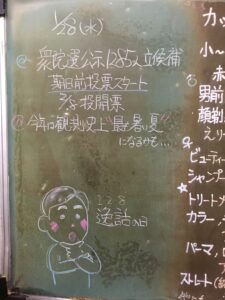 1/28(水)
衆院選公示1285人立候補
期日前投票スタート
2/8 投開票
今年は観測史上"最も暑い夏"
になるかも…
1 2 8
逸話の日
カッ
小～
赤
男前
顔剃
えり
ビューティー
シャンプー
★トリートメ
カラー
パーマ
ストレート